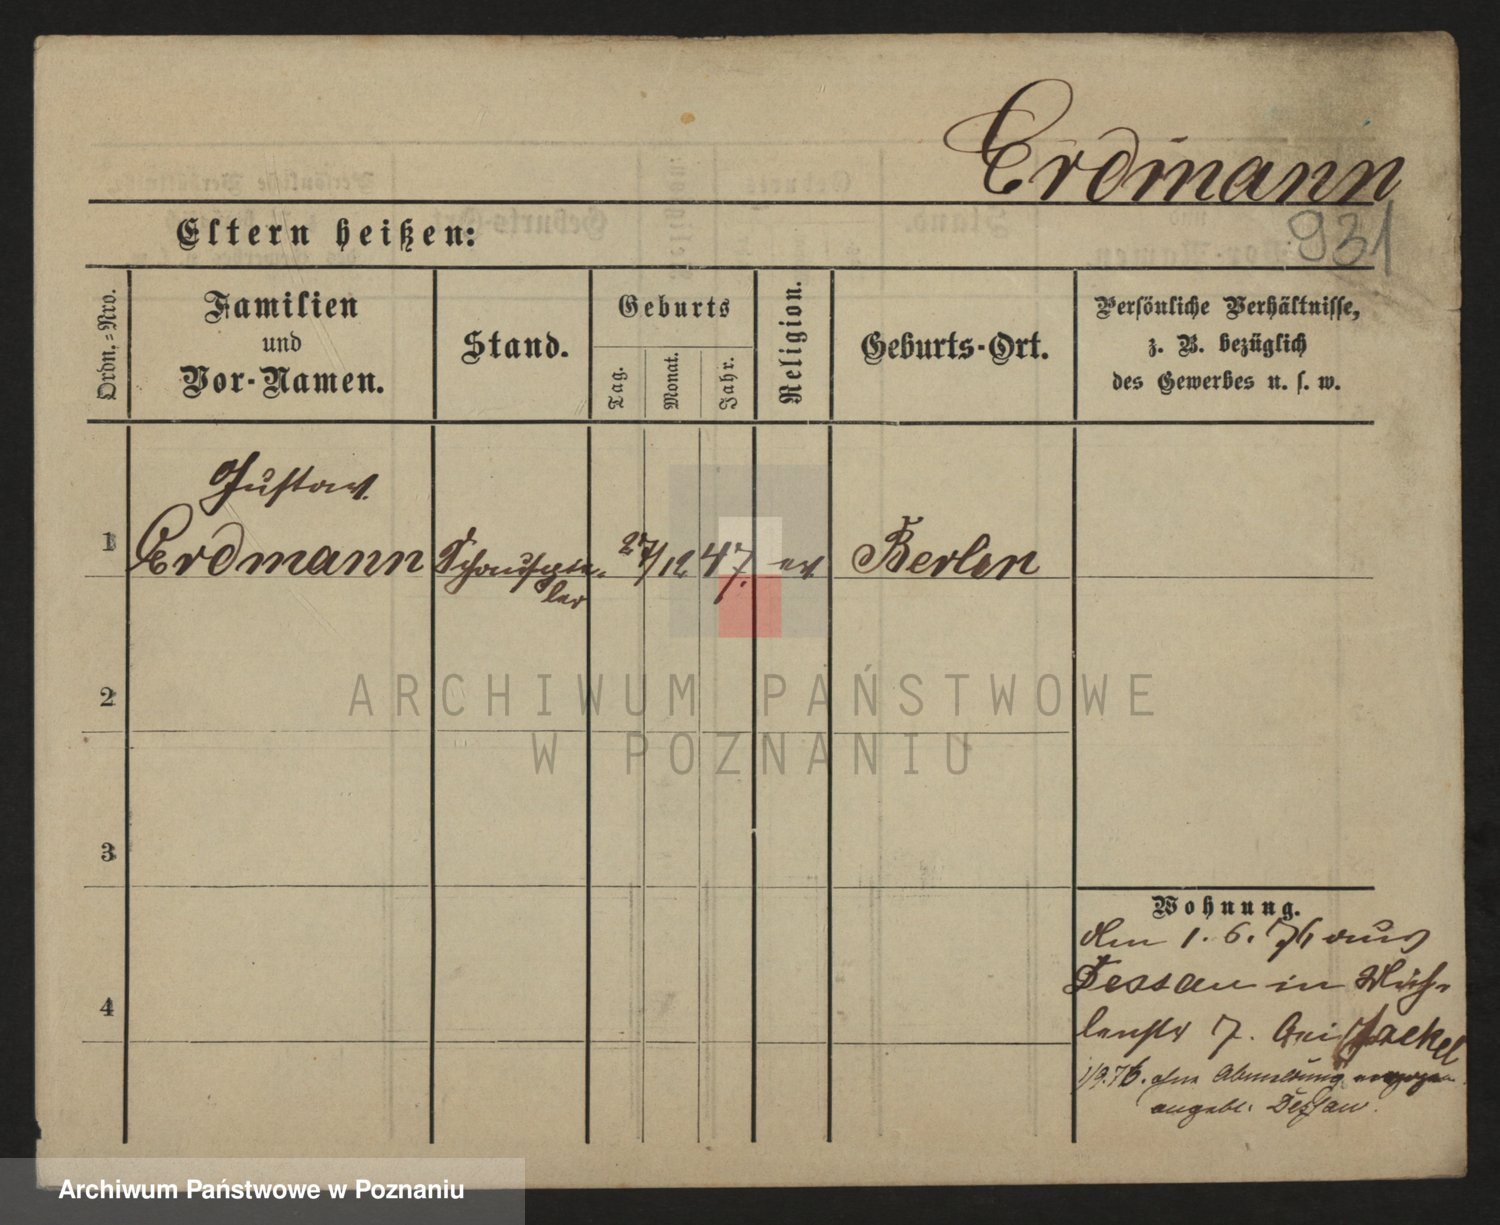 Erdmann
931
Eltern heißen:
Ordn.-Nro.
Familien
und
Vor-Namen.
Stand.
Geburts
Tag.
Monat.
Jahr.
Religion.
Geburts-Ort.
Persönliche Verhältnisse,
z. B. bezüglich
des Gewerbes u. s. w.
Gustav
1 Erdmann Schauspie- 27/12 47. ev Berlin
ler
ARCHIWUM PAŃSTWOWE
W POZNANIU
2
3
4
Wohnung.
den 1. 6. 76 aus
Dessau in Müh-
lenstr 7. bei Jaekel
1/9.76. ohne Abmeldung verzogen
angebl. Dessau.
Archiwum Państwowe w Poznaniu